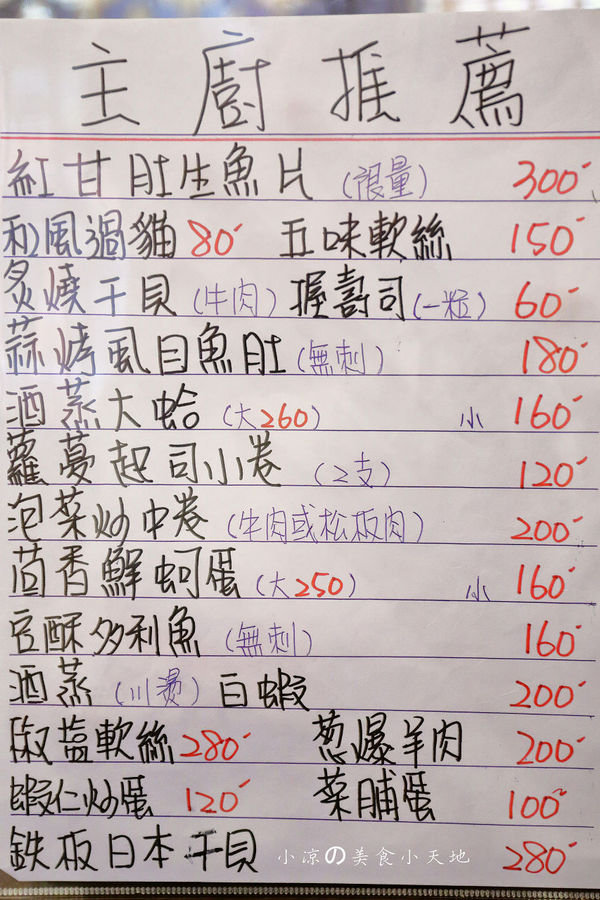 主廚推薦
紅甘肚生魚片（限量） 300
和風過貓 80 五味軟絲 150
炙燒干貝（牛肉）握壽司（一粒） 60
蒜烤虱目魚肚（無刺） 180
酒蒸大蛤（大260） 小 160
蘿蔓起司小卷（2支） 120
泡菜炒中卷（牛肉或松板肉） 200
茴香鮮蚵蛋（大250） 小 160
豆酥多利魚（無刺） 160
酒蒸（川燙）白蝦 200
椒塩軟絲 280 葱爆羊肉 200
蝦仁炒蛋 120 菜脯蛋 100
鉄板日本干貝 280
小涼の美食小天地